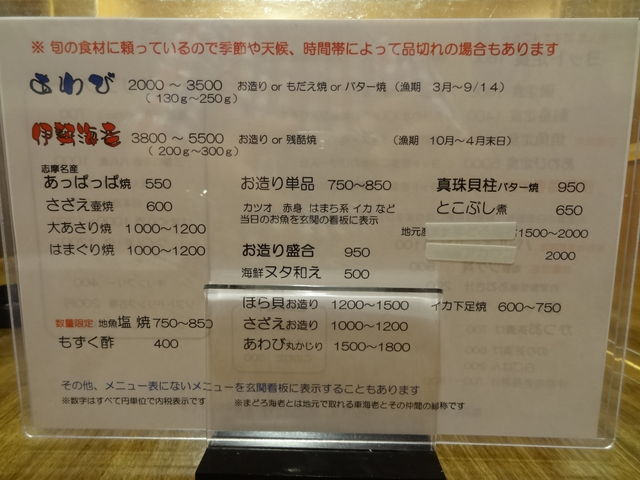 ※ 旬の食材に頼っているので季節や天候、時間帯によって品切れの場合もあります
あわび 2000 ～ 3500 お造り or もだえ焼 or バター焼 （漁期 3月～9/14）
（130g～250g）
伊勢海老 3800 ～ 5500 お造り or 残酷焼 （漁期 10月～4月末日）
（200g～300g）
志摩名産
あっぱっぱ焼 550
さざえ壺焼 600
大あさり焼 1000～1200
はまぐり焼 1000～1200
数量限定 地魚塩焼 750～850
もずく酢 400
お造り単品 750～850
カツオ 赤身 はまち系 イカ など
当日のお魚を玄関の看板に表示
お造り盛合 950
海鮮ヌタ和え 500
ほら貝お造り 1200～1500
さざえお造り 1000～1200
あわび丸かじり 1500～1800
真珠貝柱バター焼 950
とこぶし煮 650
地元 1500～2000
2000
イカ下足焼 600～750
その他、メニュー表にないメニューを玄関看板に表示することもあります
※数字はすべて円単位で内税表示です ※まどろ海老とは地元で取れる車海老とその仲間の総称です